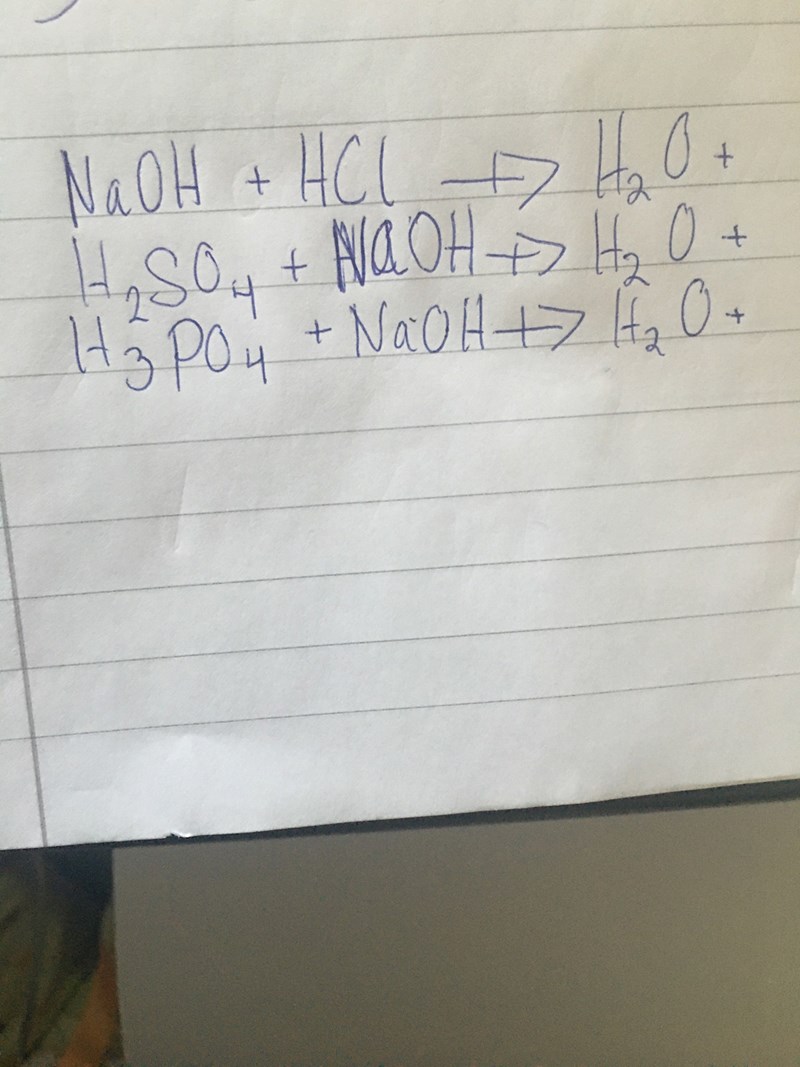 NaOH + HCl → H₂O +
H₂SO₄ + NaOH → H₂O +
H₃PO₄ + NaOH → H₂O +